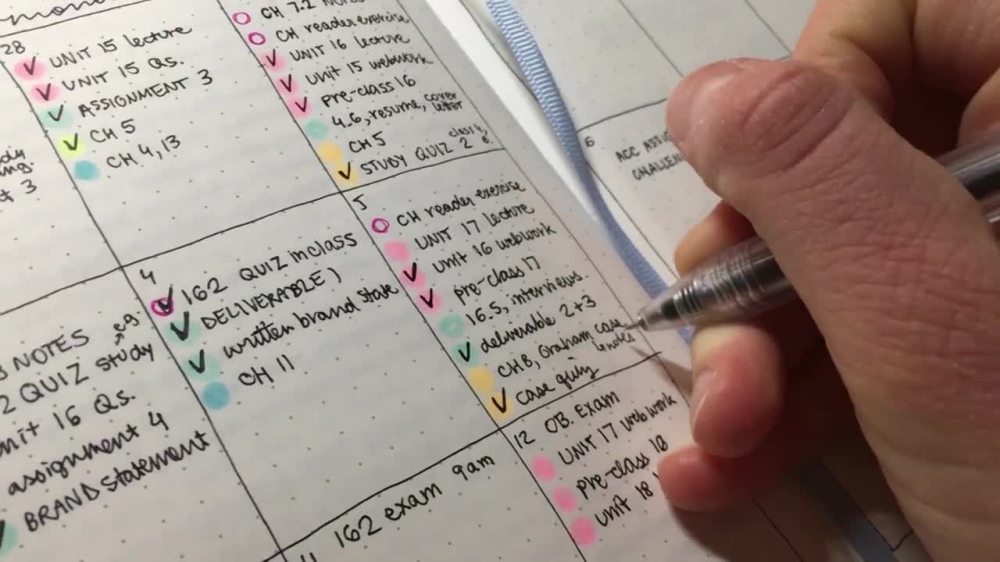 28
UNIT 15 lecture
UNIT 15 Qs.
ASSIGNMENT 3
CH 5
CH 4,13
CH 7.2
CH reader exercise
UNIT 16 lecture
unit 15 webwork
pre-class 16
4.6, resume, cover letter
CH 5
STUDY QUIZ 2
3
NOTES
QUIZ study
16 Qs.
assignment 4
BRAND Statement
4
162 QUIZ in class
DELIVERABLE )
written brand state
CH 11
5
CH reader exercise
UNIT 17 lecture
unit 16 webwork
pre-class 17
16.5, interviews
deliverable 2+3
CH 8, Graham case
& notes
case quiz
6
ACC
162 exam 9am
12 OB. Exam
UNIT 17 webwork
pre-class 18
unit 18